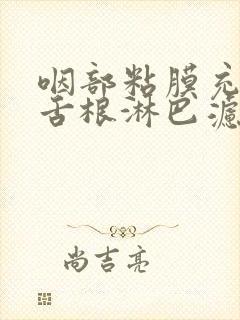 咽部粘膜充
舌根淋巴滤
尚吉亮